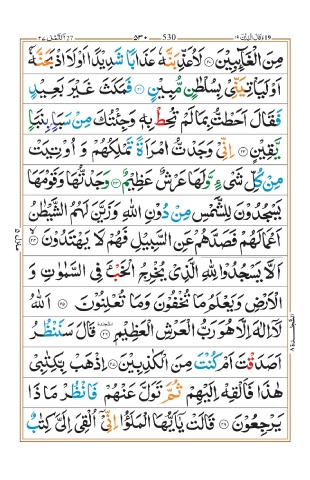 وقال الذين ١٩ 530 ٥٣٠ النمل ٢٧
مِنَ الْغَآئِبِيْنَ ﴿۲۰﴾ لَاُعَذِّبَنَّهٗ عَذَابًا شَدِيْدًا اَوْ لَاَاذْبَحَنَّهٗۤ
اَوْ لَيَاْتِيَنِّيْ بِسُلْطٰنٍ مُّبِيْنٍ ﴿۲۱﴾ فَمَكَثَ غَيْرَ بَعِيْدٍ
فَقَالَ اَحَطْتُّ بِمَا لَمْ تُحِطْ بِهٖ وَجِئْتُكَ مِنْ سَبَاٍۭ بِنَبَاٍ
يَّقِيْنٍ ﴿۲۲﴾ اِنِّيْ وَجَدْتُّ امْرَاَةً تَمْلِكُهُمْ وَاُوْتِيَتْ
مِنْ كُلِّ شَيْءٍ وَّلَهَا عَرْشٌ عَظِيْمٌ ﴿۲۳﴾ وَجَدْتُّهَا وَقَوْمَهَا
يَسْجُدُوْنَ لِلشَّمْسِ مِنْ دُوْنِ اللّٰهِ وَزَيَّنَ لَهُمُ الشَّيْطٰنُ
اَعْمَالَهُمْ فَصَدَّهُمْ عَنِ السَّبِيْلِ فَهُمْ لَا يَهْتَدُوْنَ ﴿۲۴﴾
اَلَّا يَسْجُدُوْا لِلّٰهِ الَّذِيْ يُخْرِجُ الْخَبْءَ فِي السَّمٰوٰتِ وَ
الْاَرْضِ وَيَعْلَمُ مَا تُخْفُوْنَ وَمَا تُعْلِنُوْنَ ﴿۲۵﴾ اَللّٰهُ
لَاۤ اِلٰهَ اِلَّا هُوَ رَبُّ الْعَرْشِ الْعَظِيْمِ ﴿۲۶﴾ السجدة قَالَ سَنَنْظُرُ
اَصَدَقْتَ اَمْ كُنْتَ مِنَ الْكٰذِبِيْنَ ﴿۲۷﴾ اِذْهَبْ بِّكِتٰبِيْ
هٰذَا فَاَلْقِهْ اِلَيْهِمْ ثُمَّ تَوَلَّ عَنْهُمْ فَانْظُرْ مَاذَا
يَرْجِعُوْنَ ﴿۲۸﴾ قَالَتْ يٰۤاَيُّهَا الْمَلَؤُا اِنِّيْۤ اُلْقِيَ اِلَيَّ كِتٰبٌ
السجدة ٨